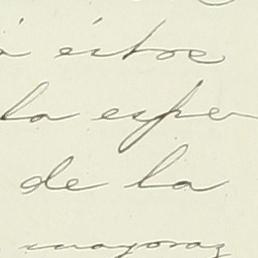 á éstos
la espe
de la
mayoraz